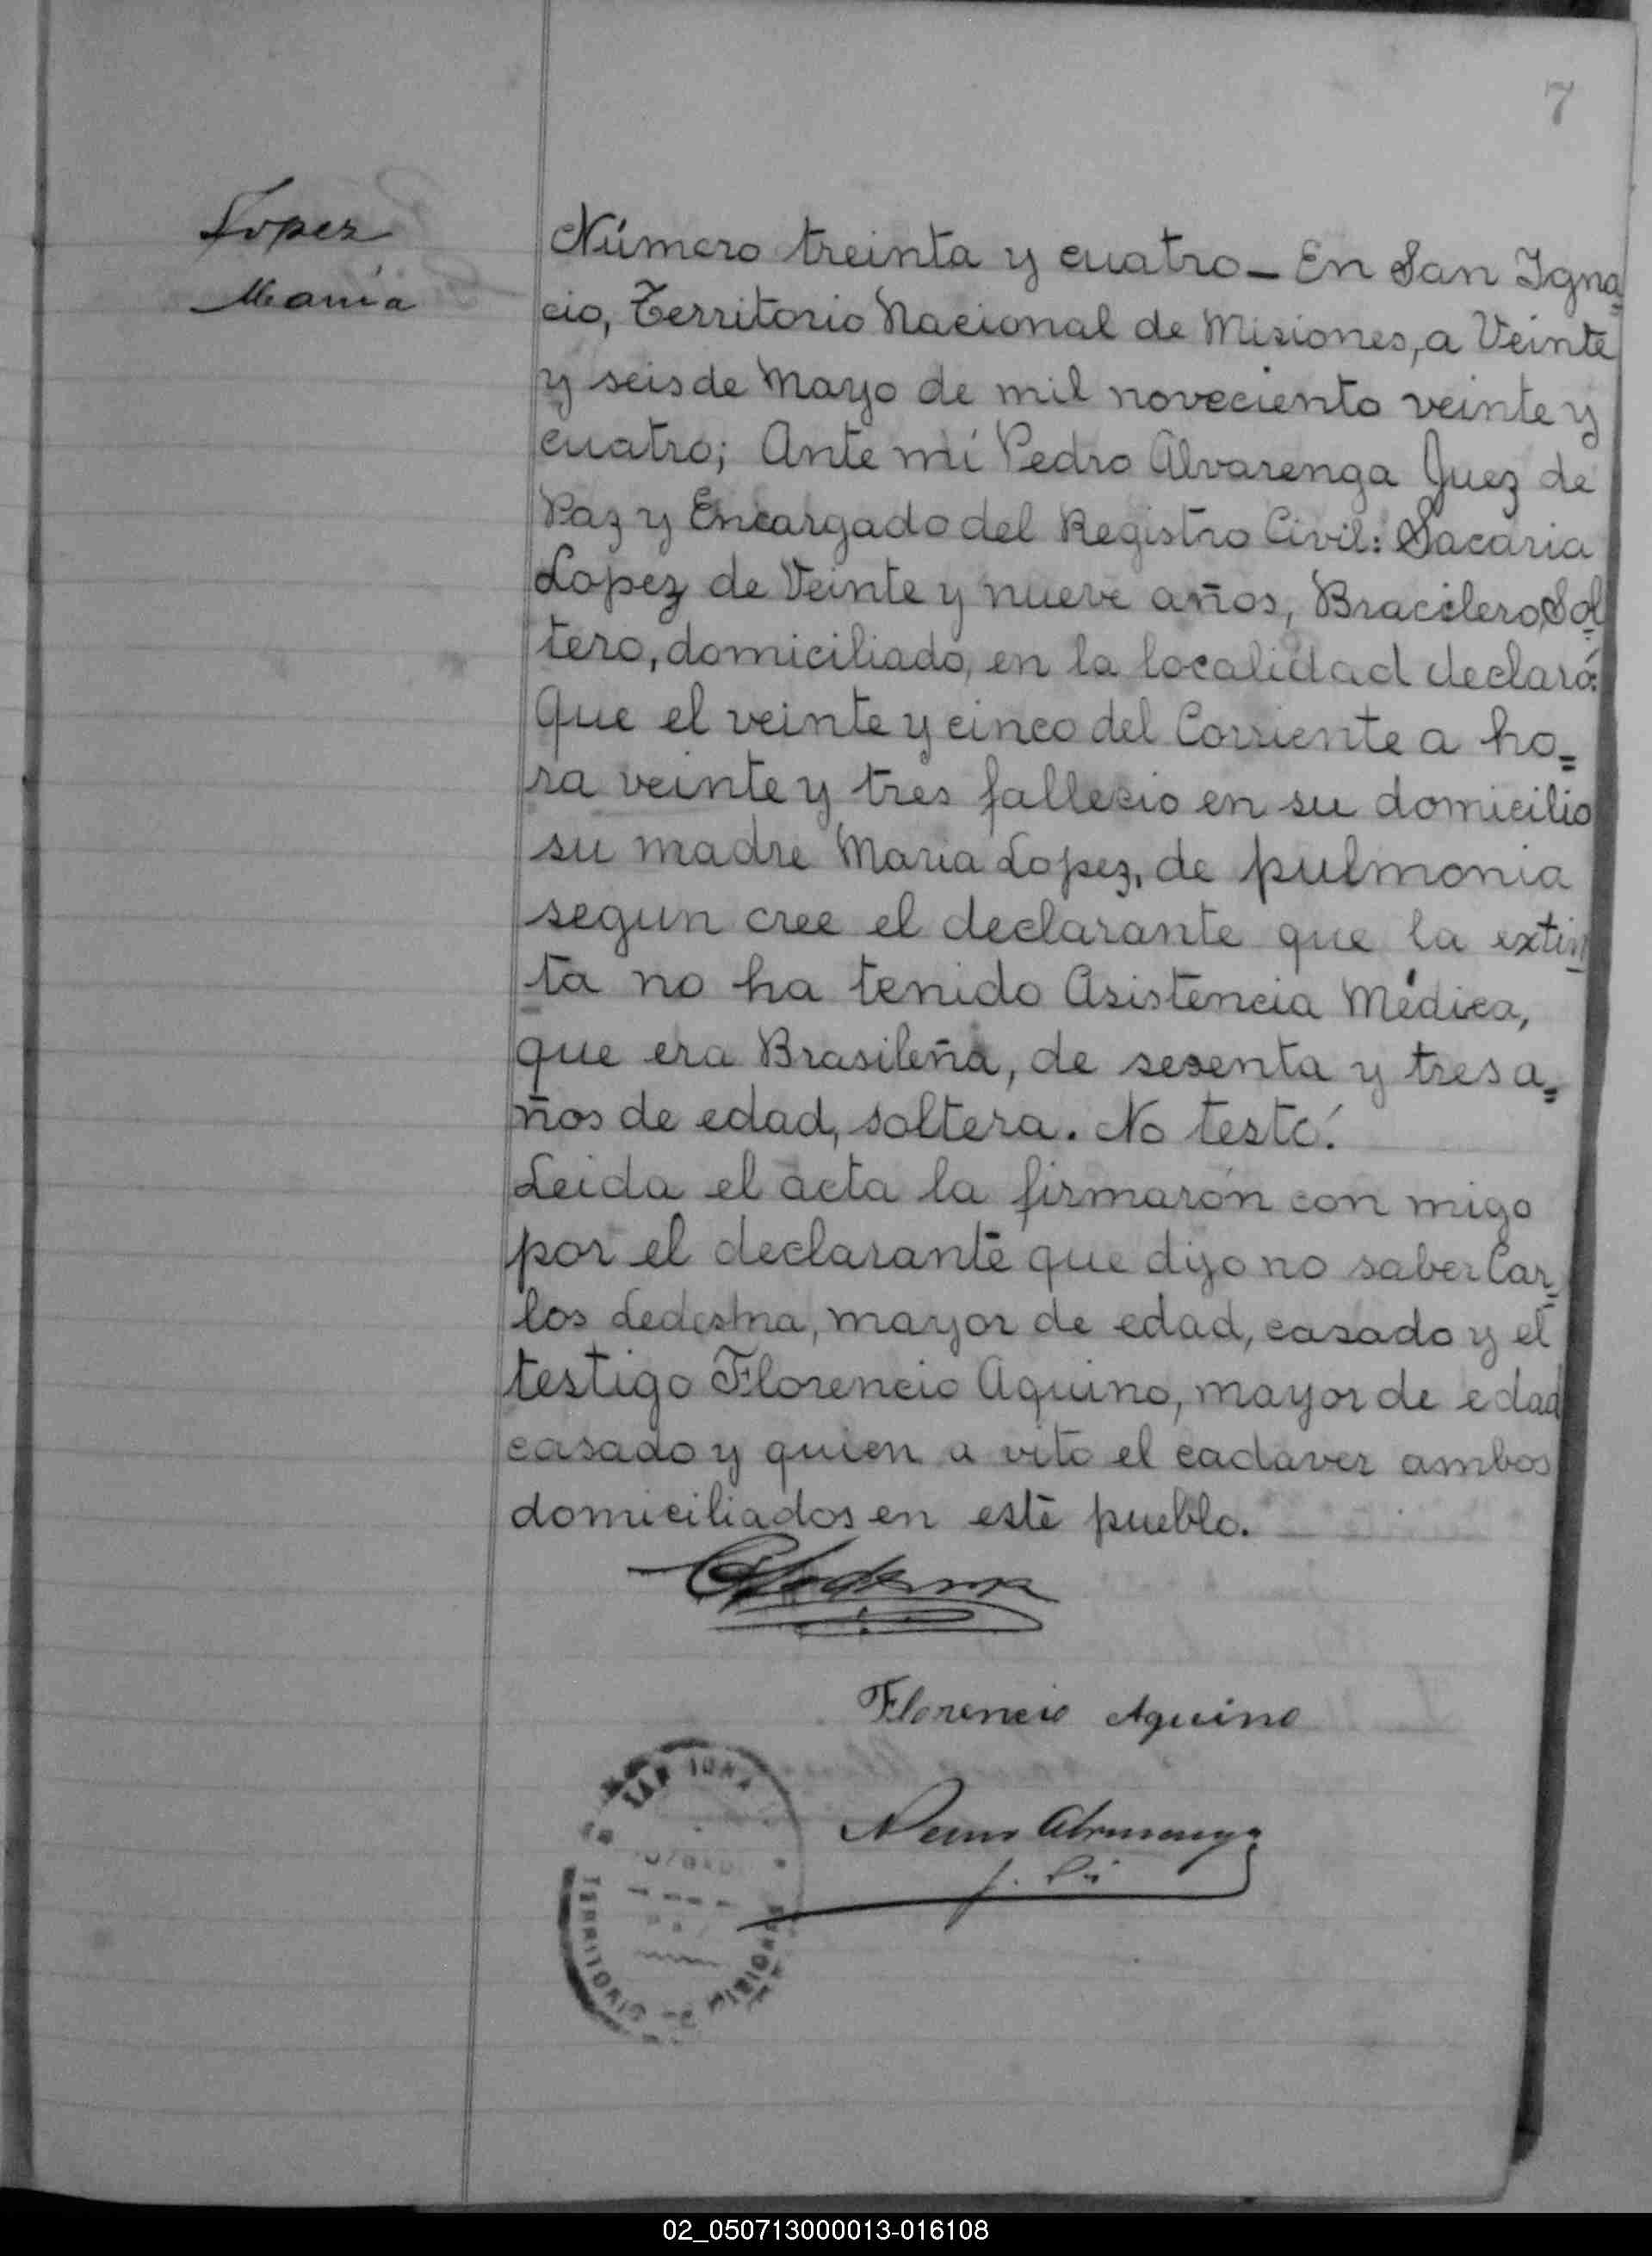 7
Lopez
Maria
Número treinta y cuatro_ En San Igna=
cio, Territorio Nacional de Misiones, a Veinte
y seis de Mayo de mil noveciento veinte y
cuatro; Ante mí Pedro Alvarenga Juez de
Paz y Encargado del Registro Civil: Sacaria
Lopez de Veinte y nueve años, Bracilero, Sol=
tero, domiciliado, en la localidad declaró:
Que el veinte y cinco del Corriente a ho=
ra veinte y tres fallecio en su domicilio
su madre Maria Lopez, de pulmonia
segun cree el declarante que la extin=
ta no ha tenido Asistencia Médica,
que era Brasileña, de sesenta y tres a=
ños de edad, soltera. No testó.
Leida el acta la firmarón con migo
por el declarante que dijo no saber Car=
los Ledesma, mayor de edad, casado y el
testigo Florencio Aquino, mayor de edad
casado y quien a vito el cadaver ambos
domiciliados en este pueblo.
Florencio Aquino
SAN IGNA
TERRITORIO
MISIONES
02_050713000013-016108